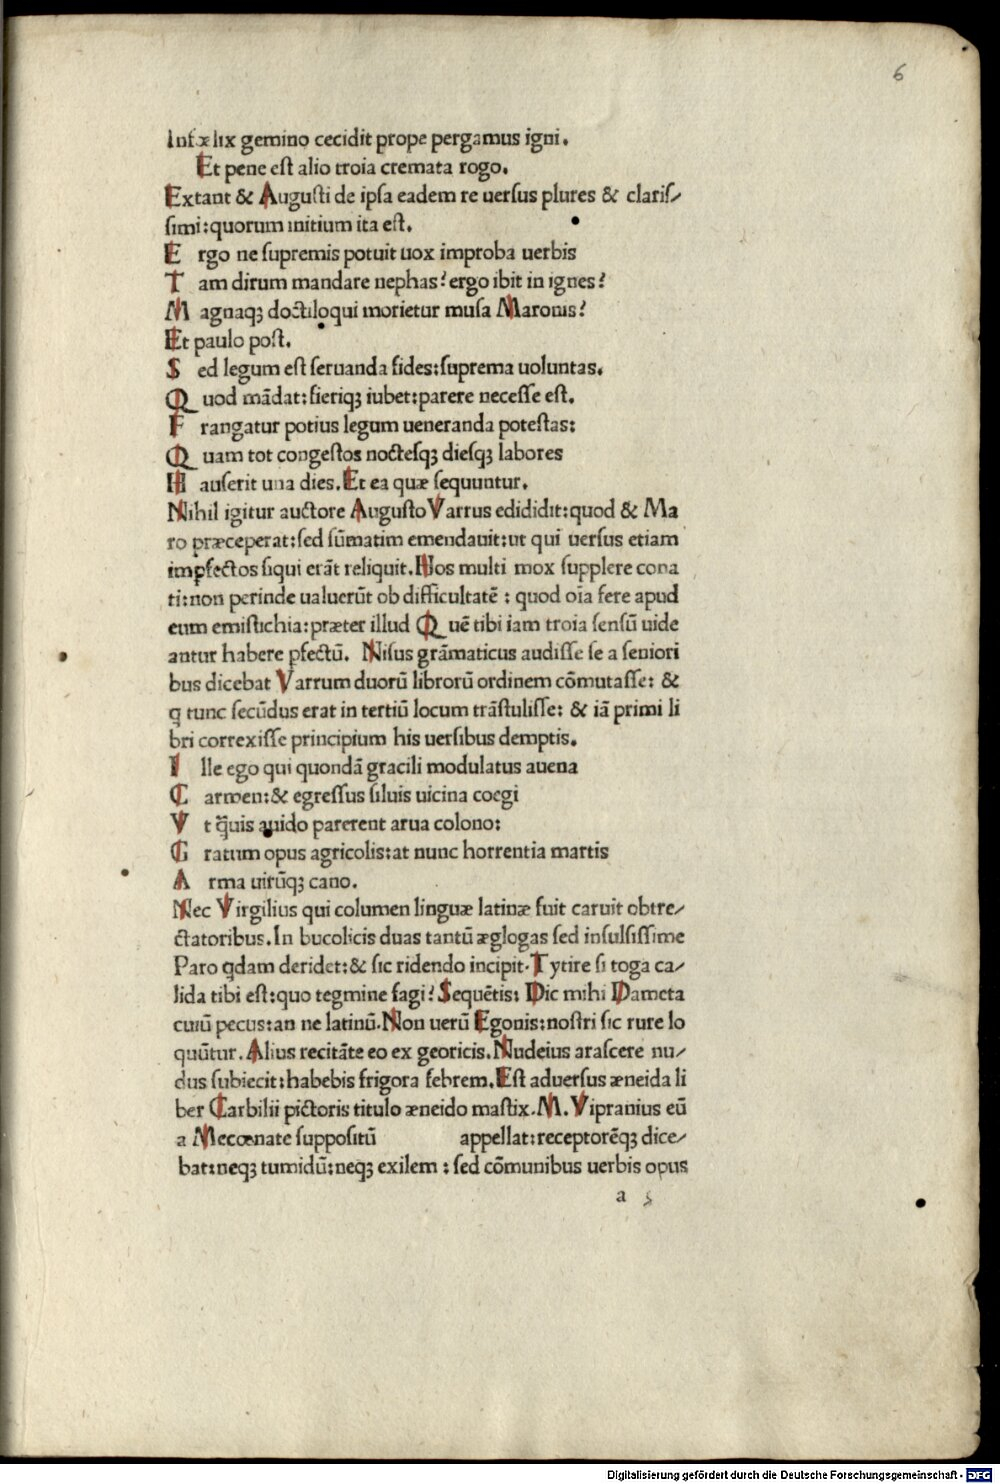 6
Infælix gemino cecidit prope pergamus igni.
Et pene est alio troia cremata rogo.
Extant & Augusti de ipsa eadem re uersus plures & clariſ⸗
simi:quorum initium ita est.
E rgo ne supremis potuit uox improba uerbis
T am dirum mandare nephas? ergo ibit in ignes?
M agnaqꝫ doctiloqui morietur musa Maronis?
Et paulo post.
S ed legum est seruanda fides:suprema uoluntas.
Q uod mãdat:fieriqꝫ iubet:parere necesse est.
F rangatur potius legum ueneranda potestas:
Q uam tot congestos noctesqꝫ diesqꝫ labores
H auserit una dies. Et ea quæ sequuntur.
Nihil igitur auctore Augusto Varrus edididit:quod & Ma
ro præceperat:sed sũmatim emendauit:ut qui uersus etiam
imꝑfectos siqui erãt reliquit. Nos multi mox supplere cona
ti:non perinde ualuerũt ob difficultatẽ : quod oĩa fere apud
eum emistichia:præter illud Q uẽ tibi iam troia sensũ uide
antur habere ꝑfectũ. Nisus grãmaticus audisse se a seniori
bus dicebat Varrum duorũ librorũ ordinem cõmutasse: &
q tunc secũdus erat in tertiũ locum trãstulisse: & iã primi li
bri correxisse principium his uersibus demptis.
I lle ego qui quondã gracili modulatus auena
C armen:& egressus siluis uicina coegi
V t q̃uis auido parerent arua colono:
G ratum opus agricolis:at nunc horrentia martis
A rma uirũqꝫ cano.
Nec Virgilius qui columen linguæ latinæ fuit caruit obtre⸗
ctatoribus. In bucolicis duas tantũ æglogas sed insulsissime
Paro qdam deridet:& sic ridendo incipit. Tytire si toga ca⸗
lida tibi est:quo tegmine fagi? Sequẽtis: Dic mihi Dameta
cuiũ pecus:an ne latinũ. Non uerũ Egonis:nostri sic rure lo
quũtur. Alius recitãte eo ex georicis. Nudeius arascere nu⸗
dus subiecit:habebis frigora febrem. Est aduersus æneida li
ber Carbilii pictoris titulo æneido mastix. M. Vipranius eũ
a Mecœnate suppositũ appellat:receptorẽqꝫ dice⸗
bat:neqꝫ tumidũ:neqꝫ exilem : sed cõmunibus uerbis opus
a 5
Digitalisierung gefördert durch die Deutsche Forschungsgemeinschaft - DFG